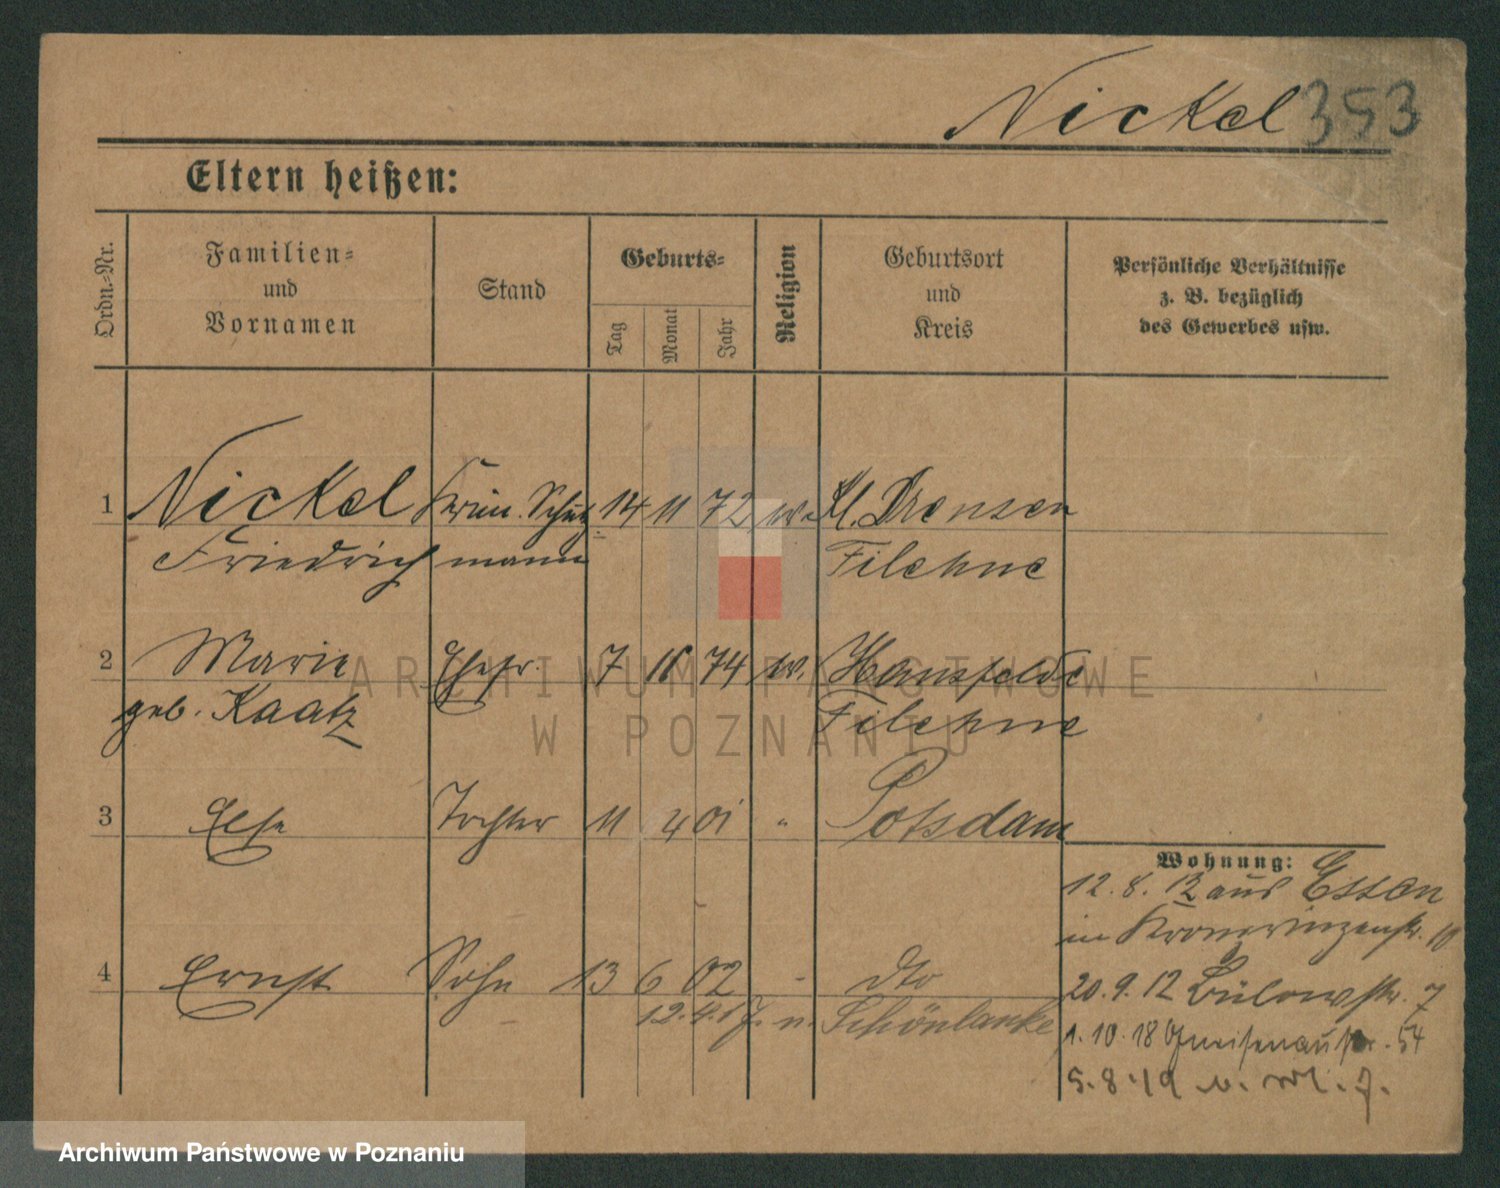 Nickel 353
Eltern heißen:
Ordn.-Nr.
Familien-
und
Vornamen
Stand
Geburts-
Tag
Monat
Jahr
Religion
Geburtsort
und
Kreis
Persönliche Verhältnisse
z. B. bezüglich
des Gewerbes usw.
1 Nickel Krim. Schutz 14 11 72 Kl. Drensen
Friedrich mann Filehne
2 Marie Ehefr. 7 74 Hansfelde
geb. Kaatz Filehne
3 Else Tochter 11 4 01 " Potsdam
Wohnung:
12. 8. 12 aus Essen
in Kronprinzenstr. 10
4 Ernst Sohn 13 6 02 - dto
20. 9. 12 Bülowstr. 7
12.4.17. n. Schönlanke
1. 10. 18 Gneisenaustr. 54
5. 8. 19
ARCHIWUM PAŃSTWOWE
W POZNANIU
Archiwum Państwowe w Poznaniu